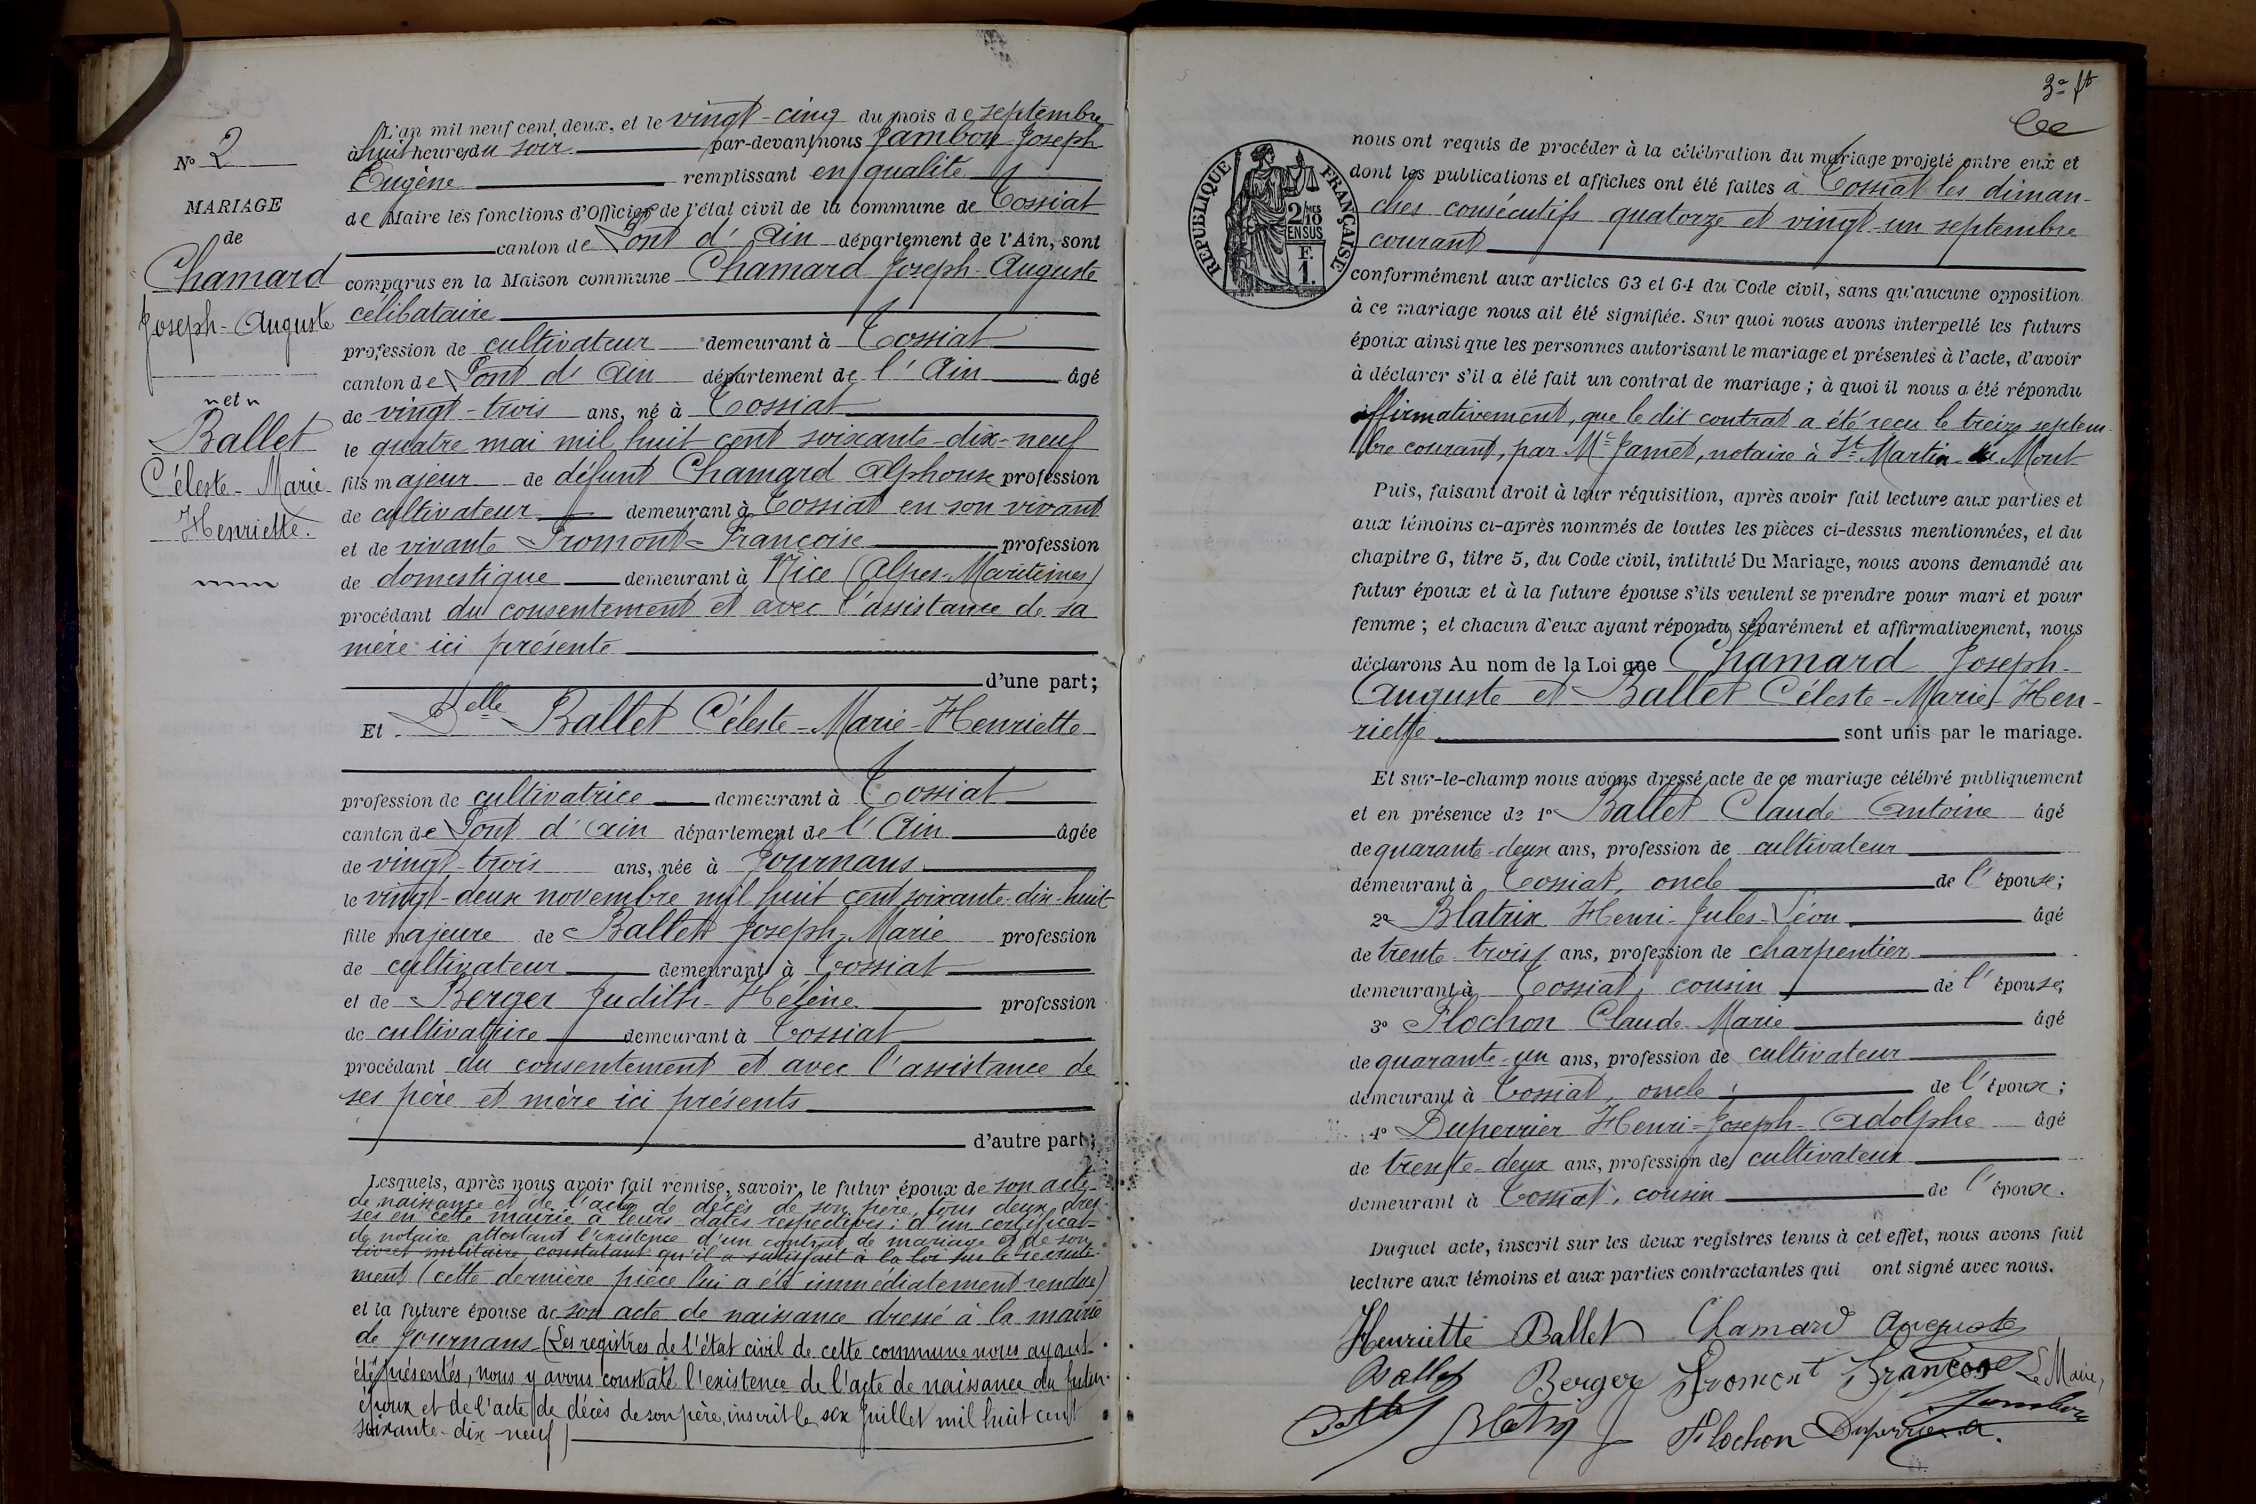 N° 2
MARIAGE
de
Chamard
Joseph-Auguste
"et"
Ballet
Céleste-Marie-
Henriette.
L'an mil neuf cent deux, et le vingt-cinq du mois de septembre
à huit heures du soir par-devant nous Jambon Joseph
Eugène remplissant en qualité
de Maire les fonctions d'Officier de l'état civil de la commune de Tossiat
canton de Pont d'Ain département de l'Ain, sont
comparus en la Maison commune Chamard Joseph-Auguste
célibataire
profession de cultivateur demeurant à Tossiat
canton de Pont d'Ain département de l'Ain âgé
de vingt-trois ans, né à Tossiat
le quatre mai mil huit cent soixante-dix-neuf
fils majeur de défunt Chamard Alphonse profession
de cultivateur demeurant à Tossiat en son vivant
et de vivante Promont Françoise profession
de domestique demeurant à Nice (Alpes-Maritimes)
procédant du consentement et avec l'assistance de sa
mère ici présente
d'une part;
Et Delle Ballet Céleste-Marie-Henriette
profession de cultivatrice demeurant à Tossiat
canton de Pont d'Ain département de l'Ain âgée
de vingt-trois ans, née à Journans
le vingt-deux novembre mil huit cent soixante-dix-huit
fille majeure de Ballet Joseph-Marie profession
de cultivateur demeurant à Tossiat
et de Berger Judith-Hélène profession
de cultivatrice demeurant à Tossiat
procédant du consentement et avec l'assistance de
ses père et mère ici présents
d'autre part;
Lesquels, après nous avoir fait remise, savoir, le futur époux de son acte
de naissance et de l'acte de décès de son père, tous deux dres-
sés en cette mairie à leurs dates respectives; d'un certificat
de notaire attestant l'existence d'un contrat de mariage et de son
livret militaire, constatant qu'il a satisfait à la loi sur le recrute-
ment (cette dernière pièce lui a été immédiatement rendue)
et la future épouse de son acte de naissance dressé à la mairie
de Journans (Les registres de l'état civil de cette commune nous ayant
été présentés, nous y avons constaté l'existence de l'acte de naissance du futur
époux et de l'acte de décès de son père, inscrit le six Juillet mil huit cent
soixante-dix-neuf)
3e ft
nous ont requis de procéder à la célébration du mariage projeté entre eux et
dont les publications et affiches ont été faites à Tossiat les diman-
ches consécutifs quatorze et vingt-un septembre
courant
RÉPUBLIQUE FRANÇAISE
2/10 EN SUS
F. 1.
conformément aux articles 63 et 64 du Code civil, sans qu'aucune opposition
à ce mariage nous ait été signifiée. Sur quoi nous avons interpellé les futurs
époux ainsi que les personnes autorisant le mariage et présentes à l'acte, d'avoir
à déclarer s'il a été fait un contrat de mariage; à quoi il nous a été répondu
affirmativement, que le dit contrat a été reçu le treize septem-
bre courant, par Me Jamet, notaire à St Martin du Mont
Puis, faisant droit à leur réquisition, après avoir fait lecture aux parties et
aux témoins ci-après nommés de toutes les pièces ci-dessus mentionnées, et du
chapitre 6, titre 5, du Code civil, intitulé Du Mariage, nous avons demandé au
futur époux et à la future épouse s'ils veulent se prendre pour mari et pour
femme; et chacun d'eux ayant répondu séparément et affirmativement, nous
déclarons Au nom de la Loi que Chamard Joseph-
Auguste et Ballet Céleste-Marie-Hen-
riette sont unis par le mariage.
Et sur-le-champ nous avons dressé acte de ce mariage célébré publiquement
et en présence de 1° Ballet Claude Antoine âgé
de quarante-deux ans, profession de cultivateur
demeurant à Tossiat, oncle de l'épouse;
2° Blatrix Henri-Jules-Léon âgé
de trente-trois ans, profession de charpentier
demeurant à Tossiat, cousin de l'épouse;
3° Flochon Claude-Marie âgé
de quarante-un ans, profession de cultivateur
demeurant à Tossiat, oncle de l'époux;
4° Duperrier Henri-Joseph-Adolphe âgé
de trente-deux ans, profession de cultivateur
demeurant à Tossiat, cousin de l'époux.
Duquel acte, inscrit sur les deux registres tenus à cet effet, nous avons fait
lecture aux témoins et aux parties contractantes qui ont signé avec nous.
Henriette Ballet Chamard Auguste
Ballet Berger Fromont Françoise Le Maire,
Jambon
Ballet Blatrix Flochon Duperrier A.